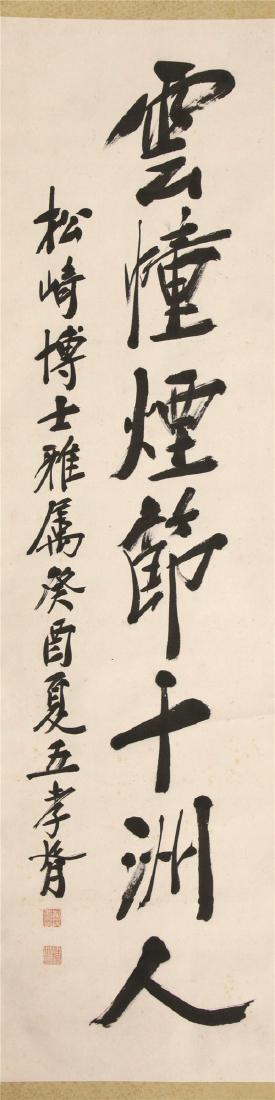 雲幢煙節十洲人
松崎博士雅属癸酉夏五孝胥